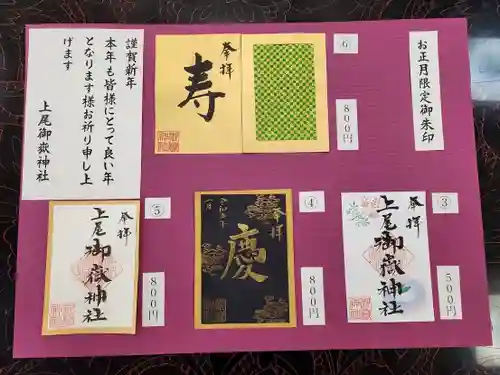 お正月限定御朱印
③
奉拝
上尾御嶽神社
500円
④
奉拝
慶
一月
800円
⑤
奉拝
上尾御嶽神社
800円
⑥
奉拝
寿
800円
謹賀新年
本年も皆様にとって良い年
となります様お祈り申し上
げます
上尾御嶽神社